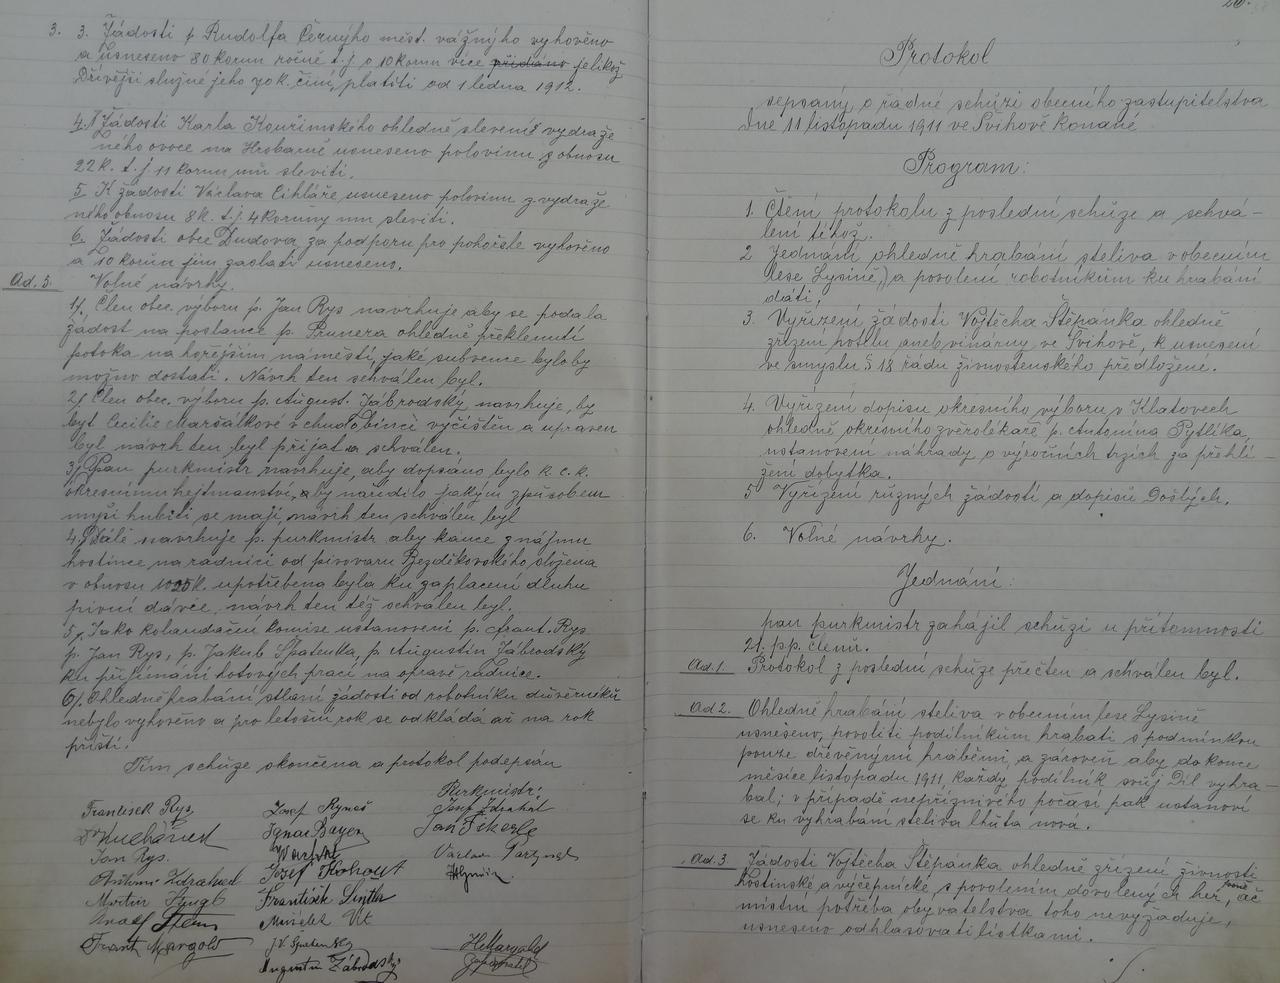 3. 3. Žádosti p. Rudolfa Černýho měst. vážnýho vyhověno
a usneseno 80 korun ročně t.j. o 10 korun více přidáno jelikož
Dřívější služné jeho 70 k. činí, platiti od 1 ledna 1912.
4. Žádosti Karla Kouřimského ohledně slevení vydraže
ného ovoce na Hrobarně usneseno polovinu z obnosu
22 K. t.j. 11 korun mu sleviti.
5 K žádosti Václava Cihláře usneseno polovinu z vydraže
ného obnosu 8 k. t.j. 4 koruny mu sleviti.
6. Žádosti obce Dudova za podporu pro pohořelé vyhověno
a 10 korun jim zaslati usneseno.
Ad. 5. Volné návrhy.
1/. Člen obec. výboru p. Jan Rys navrhuje aby se podala
žádost na poslance p. Prunera ohledně překlenutí
potoka na hořejším náměstí, jaké subvence byloby
možno dostati. Návrh ten schválen byl.
2/ Člen obec. výboru p. August. Zábrodský navrhuje, by
byt Cecilie Maršálkové v chudobinci vyčištěn a upraven
byl, návrh ten byl přijat a schválen.
3/ Pan purkmistr navrhuje, aby dopsáno bylo k. c. k.
okresnímu hejtmanství, aby nařídilo jakým způsobem
myši hubiti se mají, návrh ten schválen byl
4. Dále navrhuje p. purkmistr aby kauce z nájmu
hostince na radnici od pivovaru Bezděkovského složena
v obnosu K. upotřebena byla ku zaplacení dluhu
pivní dávce, návrh ten též schválen byl.
5/. Jako kolaudační komise ustanoveni p. Frant. Rys
p. Jan Rys, p. Jakub Špatenka, p. Augustin Zábrodský
ku přijímání hotových prací na opravě radnice.
6/. Ohledně hrabání stlaní žádosti od robotníku důvěrníků
nebylo vyhověno a pro letošní rok se odkládá až na rok
příští.
Tím schůze skončena a protokol podepsán
Purkmistr:
František Rys Josef Ryneš Josef Zdráhal
Kuchárek Ignac Bayer Jan Fikerle
Jan Rys. Václav
Antonín Zdráhal Josef Kohout
Martin František Šintler
Adolf Stein Maršálek Vít
Frant Margold JV. Špatenka
Augustin Zábrodský
Protokol
sepsaný o řádné schůzi obecního zastupitelstva
dne 11 listopadu 1911 ve Švihově konané
Program:
1. Čtení protokolu z poslední schůze a schvá-
lení téhož.
2 Jednání ohledně hrabání steliva v obecním
lese Lysině,) a povolení robotníkům ku hrabání
dáti;
3. Vyřízení žádosti Vojtěcha Štěpánka ohledně
zřízení hotelu aneb vinárny ve Švihově, k usnesení
ve smyslu § 18 řádu živnostenského předložené.
4. Vyřízení dopisu okresního výboru v Klatovech
ohledně okresního zvěrolékaře p. Antonína Pytlíka,
ustanovení náhrady o výročních trzích za prohlí-
žení dobytka.
5 Vyřízení různých žádostí a dopisů Došlých.
6. Volné návrhy.
Jednání:
pan purkmistr zahájil schůzi u přítomnosti
21. pp. členů.
Ad. 1. Protokol z poslední schůze přečten a schválen byl.
Ad 2. Ohledně hrabání steliva v obecním lese Lysině
usneseno, povoliti podílníkům hrabati s podmínkou
pouze dřevěnými hráběmi, a zároveň aby do konce
měsíce listopadu 1911, každý podílník svůj Díl vyhra-
bal; v případě nepříznivého počasí pak ustanoví
se ku vyhrabání steliva lhůta nová.
Ad. 3 Žádosti Vojtěcha Štěpánka ohledně zřízení živnosti
hostinské a výčepnické s povolením dovolených her,
místní potřeba obyvatelstva toho nevyžaduje,
usneseno odhlasovati lístkami.